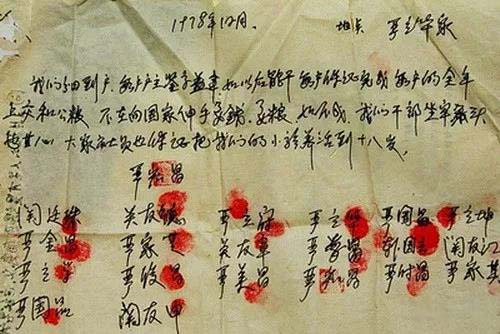 1978年12月. 地点 严立华家
我们分田到户 每户户主签字盖章 如以后能干 每户保证完成每户的全年
上交和公粮 不在向国家伸手要钱要粮 如不成 我们干部坐牢杀头
也甘心 大家社员也保证把我们的小孩养活到十八岁.
严宏昌
关廷珠 关友德 严立符 严立华 严国昌 严立坤
严金昌 严家芝 关友章 严学昌 韩国云 关友江
严立学 严俊昌 严美昌 严宏昌 严付昌 严家其
严国品 关友申